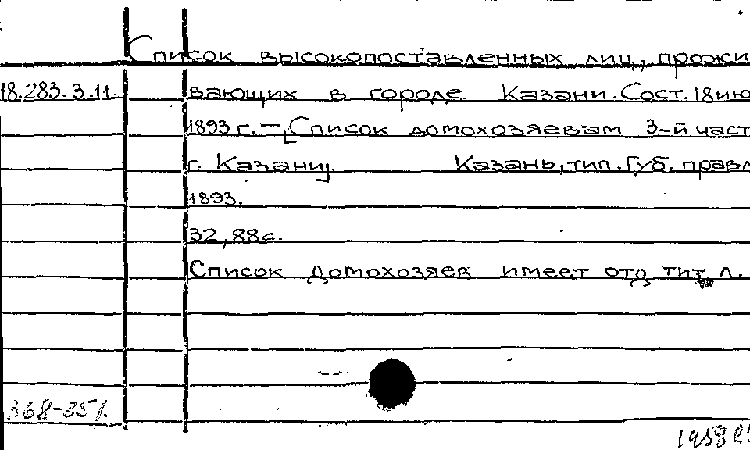 Список высокопоставленных лиц, прожи
18.283.3.11. вающих в городе Казани. Сост. 18 ию
1893 г. – [Список домохозяевам 3-й част
г. Казани] Казань, тип. Губ. правл
1893.
32, 88 с.
Список домохозяев имеет отд. тит. л.
368-85г.